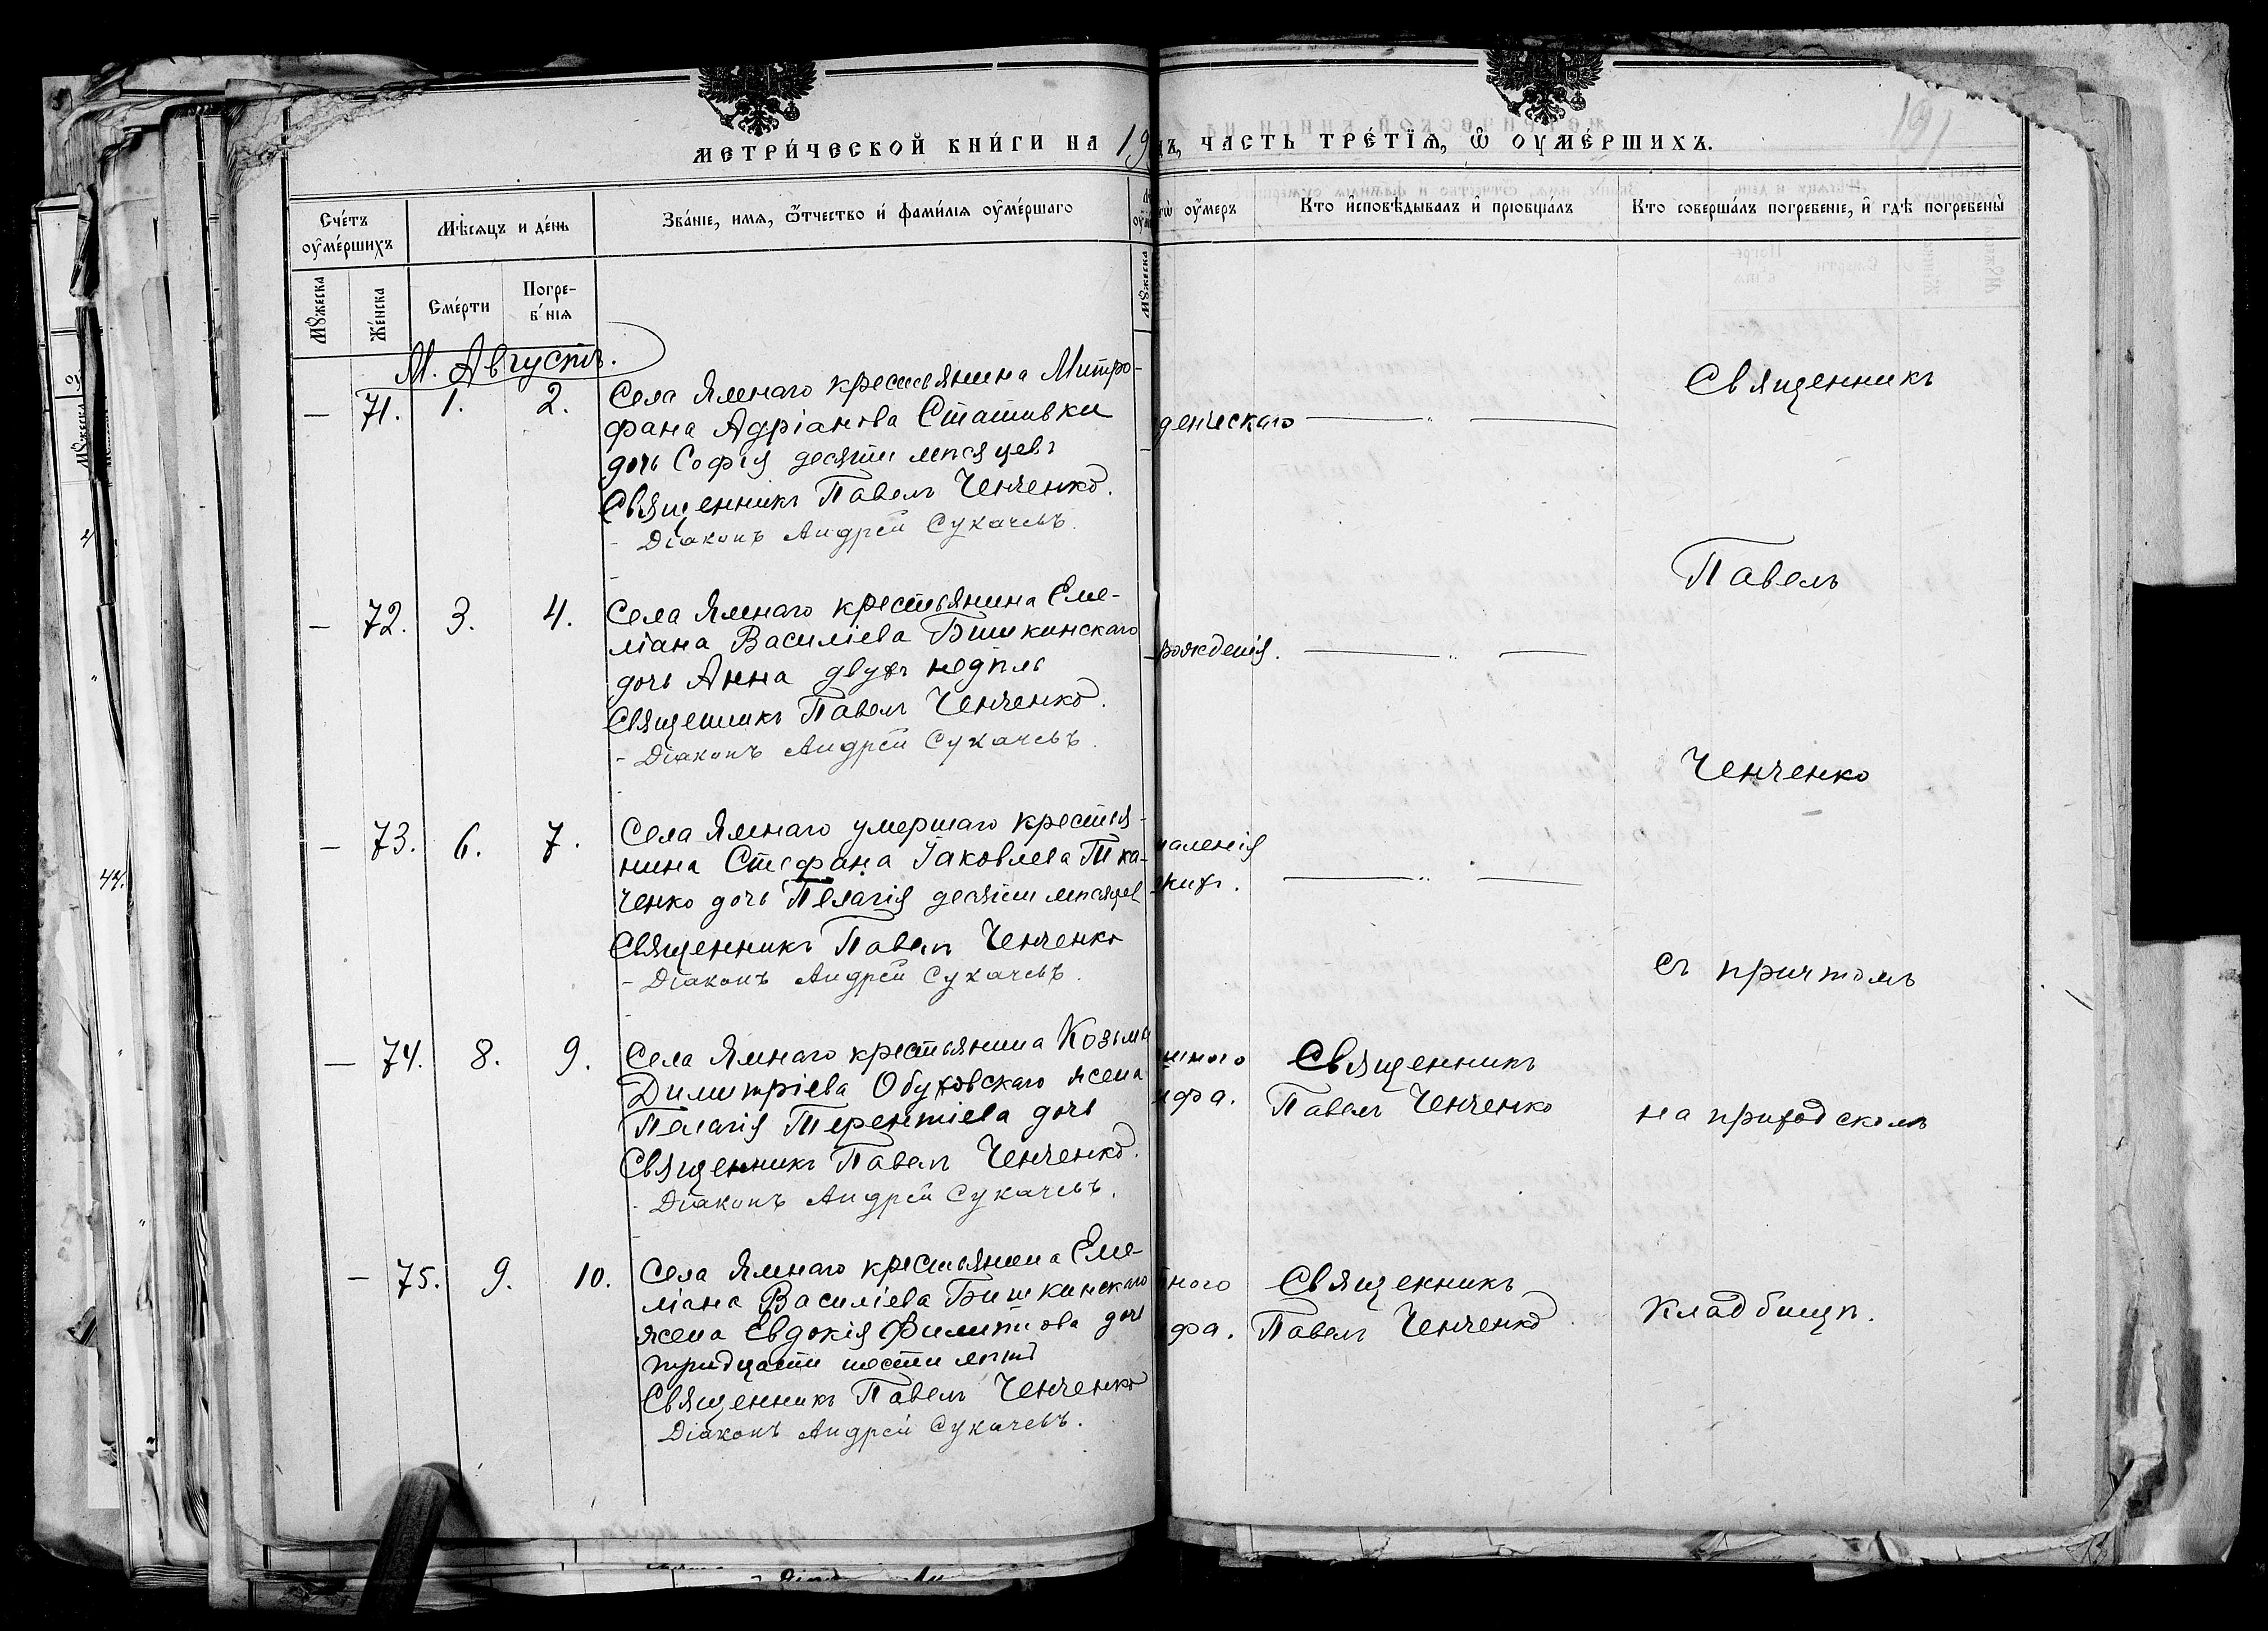 191
МЕТРИ́ЧЕСКОЙ КНИ́ГИ НА 19
ЧАСТЬ ТРЕ́ТЇѦ, Ѡ҆ ОУ҆МЕ́РШИХЪ.
Сче́тъ оу҆ме́ршихъ
Мѣ́сѧцъ и де́нь
Зва́нїе, и҆мѧ, ѻ҆́тчество и҆ фами́лїѧ оу҆ме́ршагѡ
оу҆́меръ
Кто и҆сповѣ́дывалъ и҆ прїобща́лъ
Кто соверша́лъ погребе́нїе, и҆ гдѣ̀ погребены̀
Мꙋ́жеска
Же́нска
Сме́рти
Погре-
б нїѧ
Мꙋ́жеска
М. Августъ.
— 71. 1. 2.
Села Ямнаго крестьянина Митро-
фана Адріанова Статывки
дочь Софія десяти мѣсяцевъ
Священникъ Павелъ Ченченко.
Діаконъ Андрей Сукачевъ.
денческаго
Священникъ
— 72. 3. 4.
Села Ямнаго крестьянина Еме-
ліана Василіева Бишкинскаго
дочь Анна двухъ недѣль
Священникъ Павелъ Ченченко.
Діаконъ Андрей Сукачевъ.
рожденія.
Павелъ
Ченченко
— 73. 6. 7.
Села Ямнаго умершаго крестья-
нина Стефана Іаковлева Тка-
ченко дочь Пелагія десяти мѣсяцев
Священникъ Павелъ Ченченко
Діаконъ Андрей Сукачевъ.
паленія
кихъ.
съ причтомъ
— 74. 8. 9.
Села Ямнаго крестьянина Козьмы
Димитріева Обуховскаго жена
Пелагія Терентіева дочь
Священникъ Павелъ Ченченко.
Діаконъ Андрей Сукачевъ.
шного
ифа.
Священникъ
Павелъ Ченченко
на приходскомъ
— 75. 9. 10.
Села Ямнаго крестьянина Еме-
ліана Василіева Бишкинскаго
жена Евдокія Филиппова дочь
тридцати шести лѣтъ
Священникъ Павелъ Ченченко
Діаконъ Андрей Сукачевъ.
ного
фа.
Священникъ
Павелъ Ченченко
кладбищѣ.